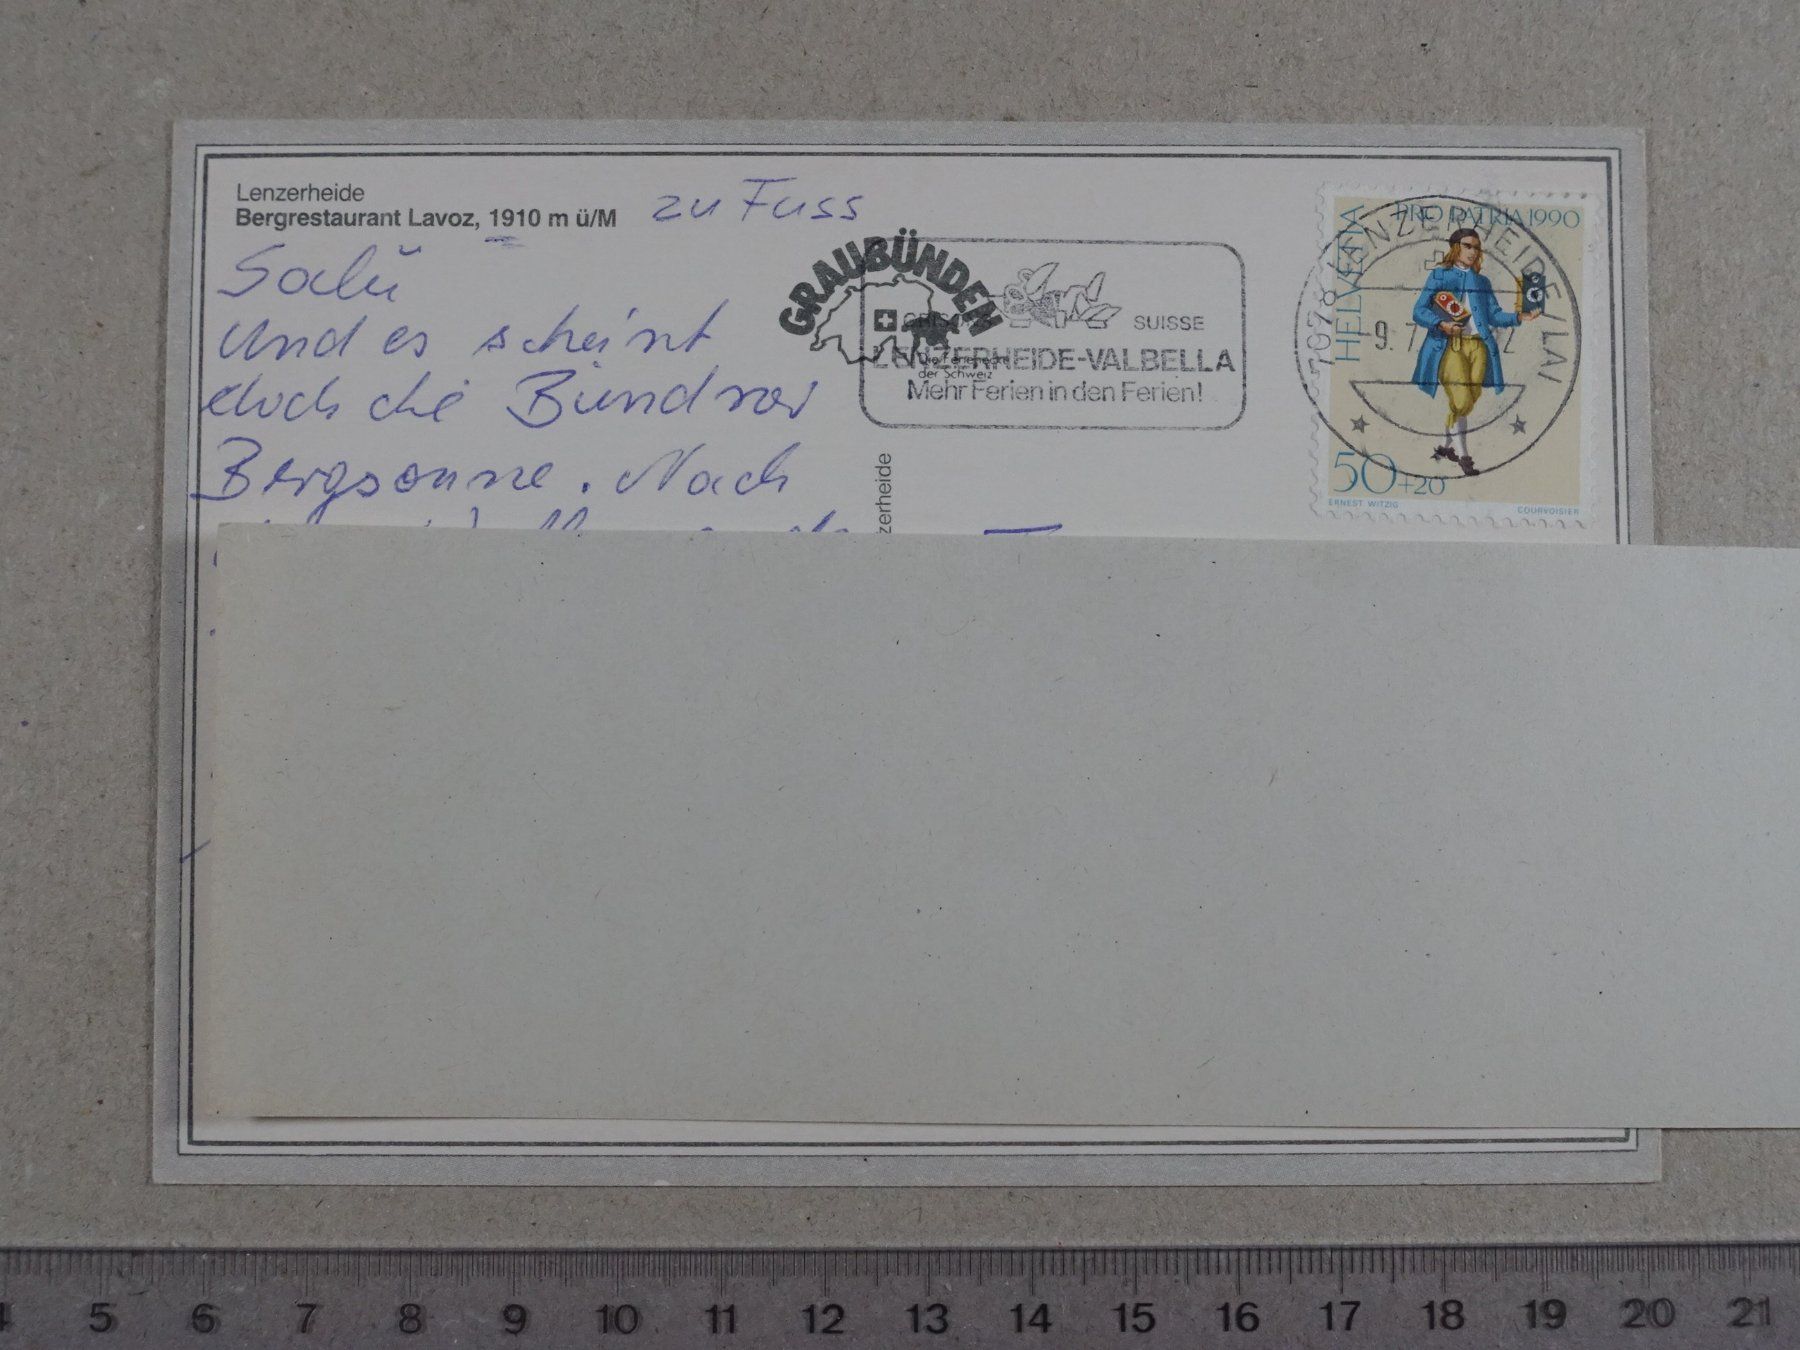 Lenzerheide
Bergrestaurant Lavoz, 1910 m ü/M
zu Fuss
Salü
Und es scheint
doch die Bündner
Bergsonne. Nach
GRAUBÜNDEN
Die Ferienecke
der Schweiz
SUISSE
LENZERHEIDE-VALBELLA
Mehr Ferien in den Ferien!
zerheide
PRO PATRIA 1990
HELVETIA
50+20
ERNEST WITZIG
COURVOISIER
7078 LENZERHEIDE/LAI
4 5 6 7 8 9 10 11 12 13 14 15 16 17 18 19 20 21